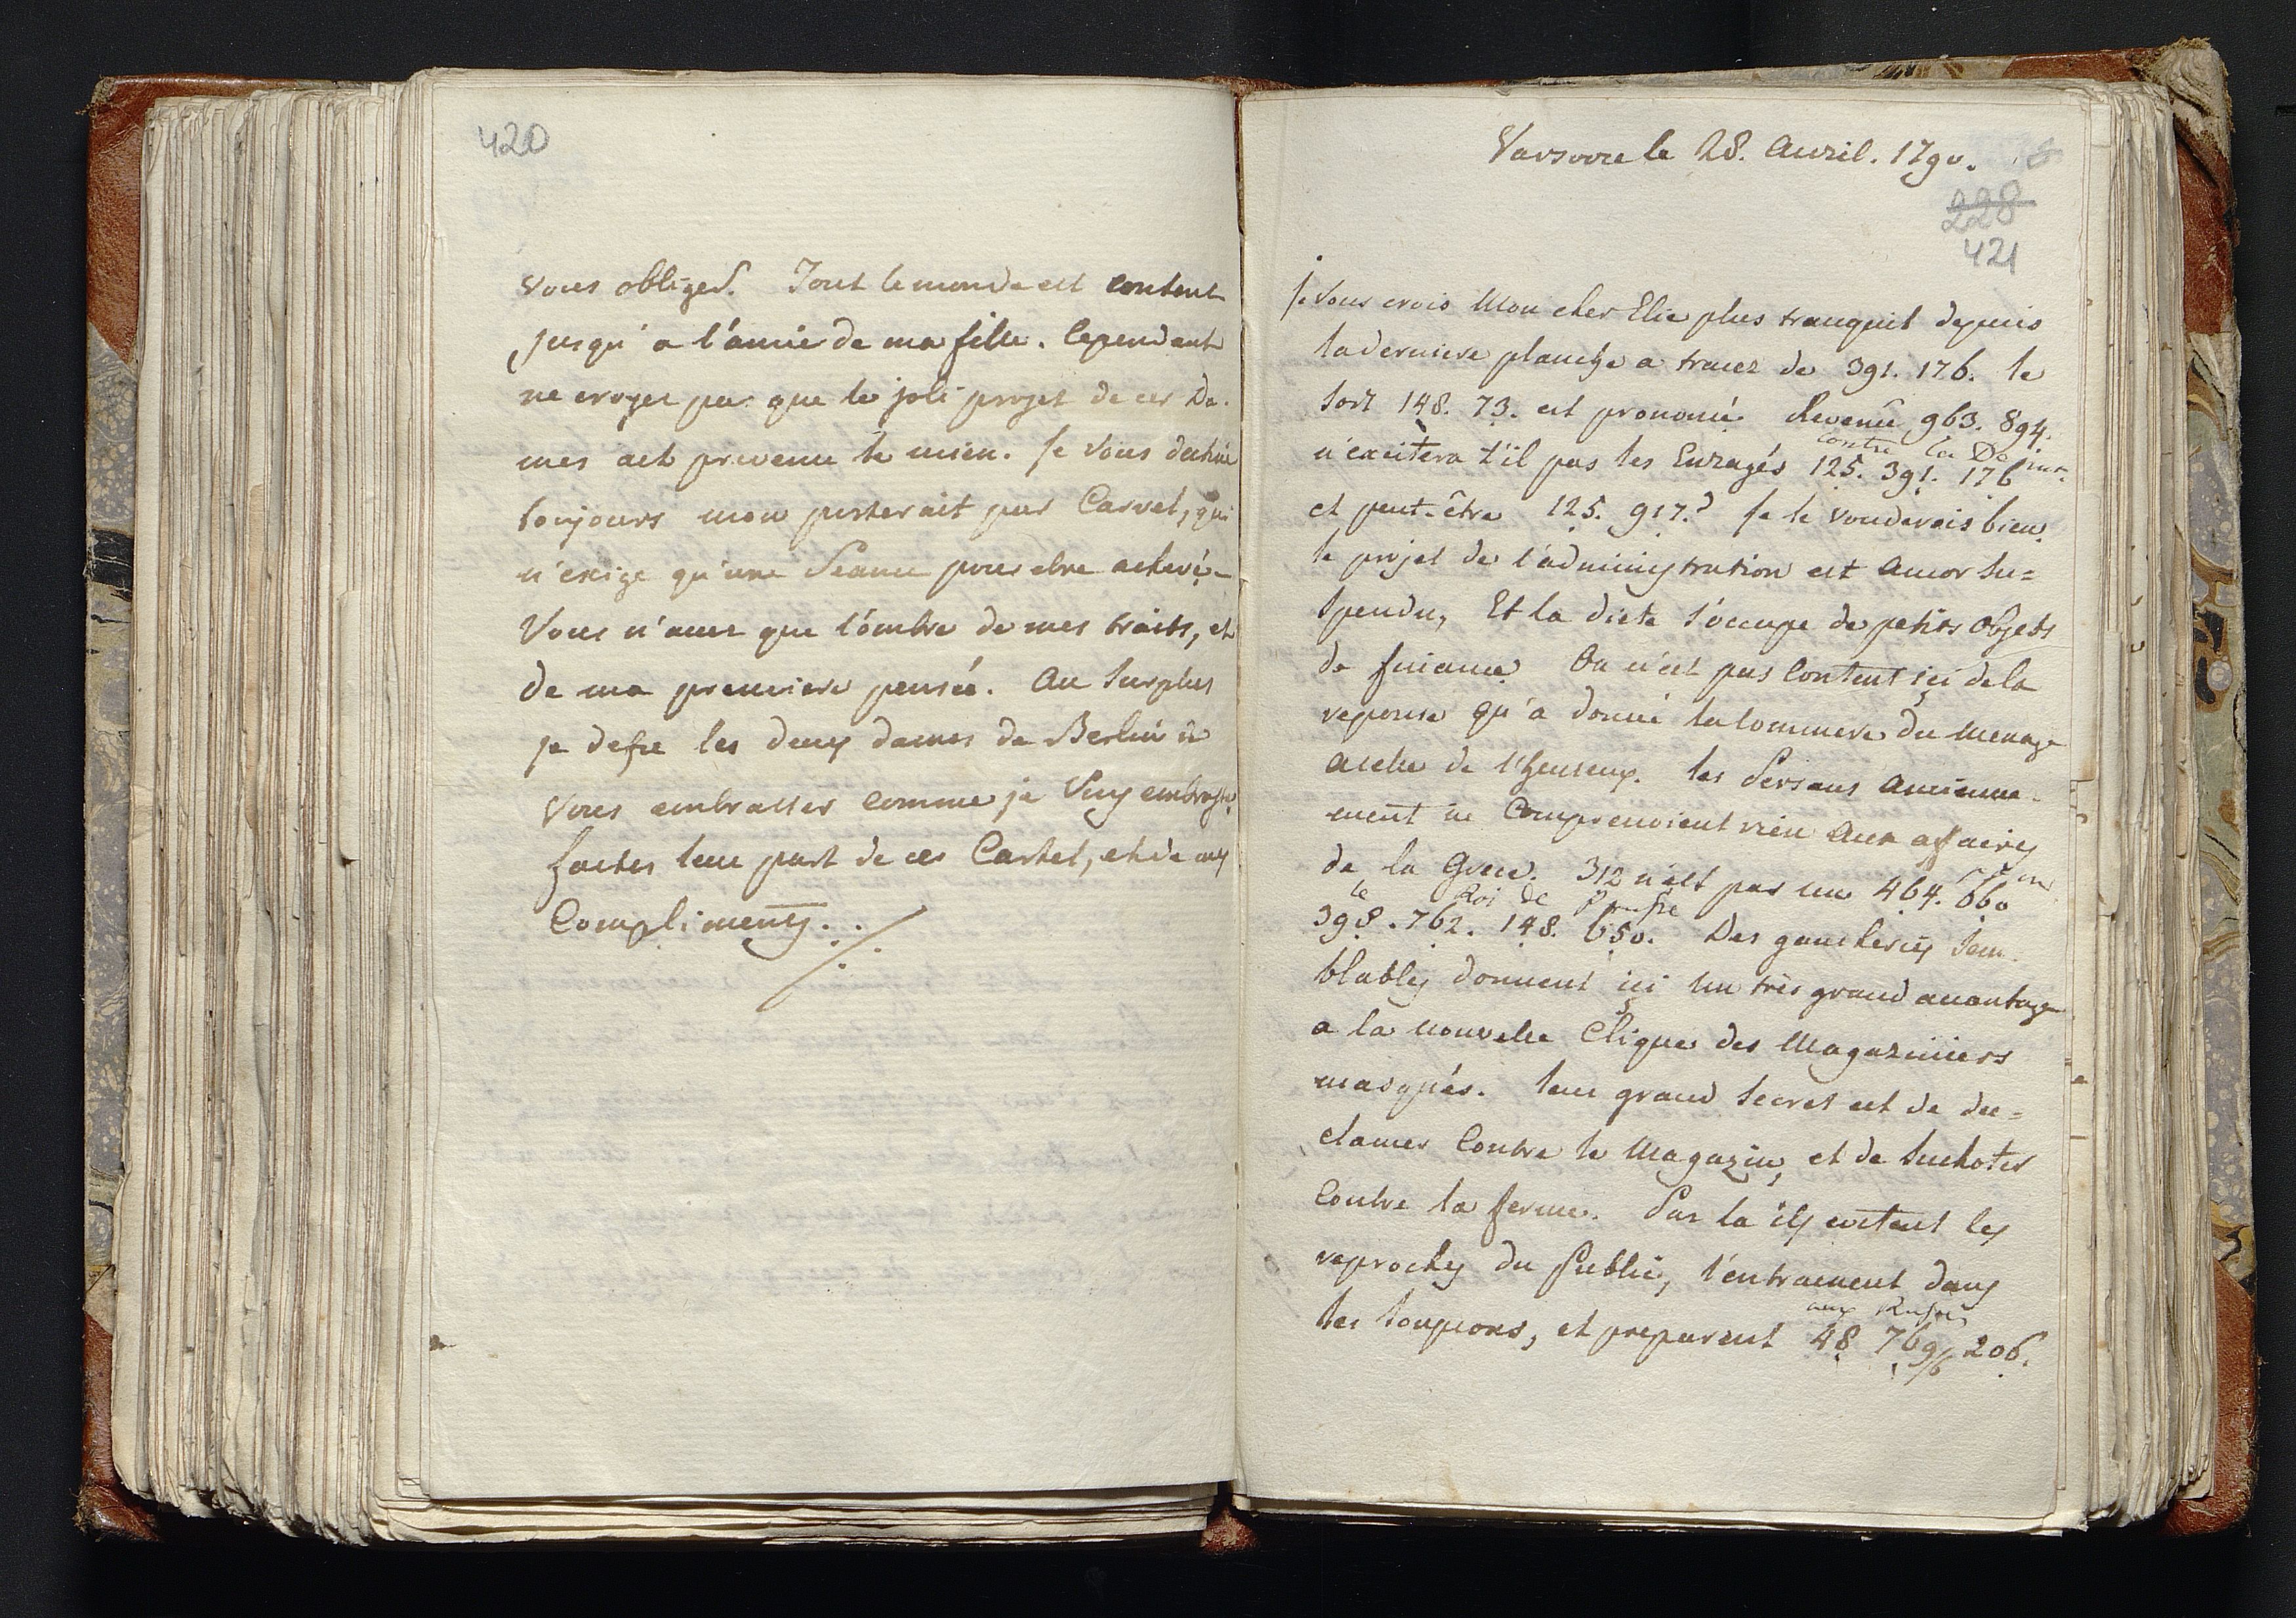 420
vous obliges. Tout le monde est content
jusqu'a l'amie de ma fille. Cependant
ne croyez pas que le joli projet de ces Da-
mes ait prevenu le mien. Je vous destine
toujours mon portrait par Carvel, qui
n'exige qu'une Seance pour etre achevé-
Vous n'avez que l'ombre de mes traits, et
de ma premiere pensée. Au surplus
je defie les deux dames de Berlin de
vous embrasser comme je vous embrasse.
faites leur part de ces Cartel, et de mes
Compliments..
Varsovie le 28. Avril. 1790.
228
421
Je vous crois Mon cher Elie plus tranquil depuis
la derniere planche a tracer de 391. 176. le
sort 148. 73. est prononcé. Revenu 963. 894.
contre la De
n'excitera t'il pas les Enragés 125. 391. 176
et peut-être 125. 917.? Je le vouderois bien.
le projet de l'administration est encor su=
spendu, Et la diete s'occupe de petits objets
de finance. On n'est pas Content ici de la
reponse qu'a donné la commere du menage
a celle de l'heureux. les Persans ancienne-
ment ne Comprenoient rien aux affaires
de la Grece. 312 n'est pas un 464. 660
le Roi de Prusse
398. 762. 148. 650. Des gaucheries sem-
blables donnent ici un très grand avantage
a la nouvelle Clique des Magaziniers
masqués. leur grand secret est de de=
clamer Contre le Magazin, et de suchoter
Contre la ferme. Par la ils evitent les
reproches du Public, l'entrainent dans
les soupcons, et preparent 48 769/6 206.
aux Russes